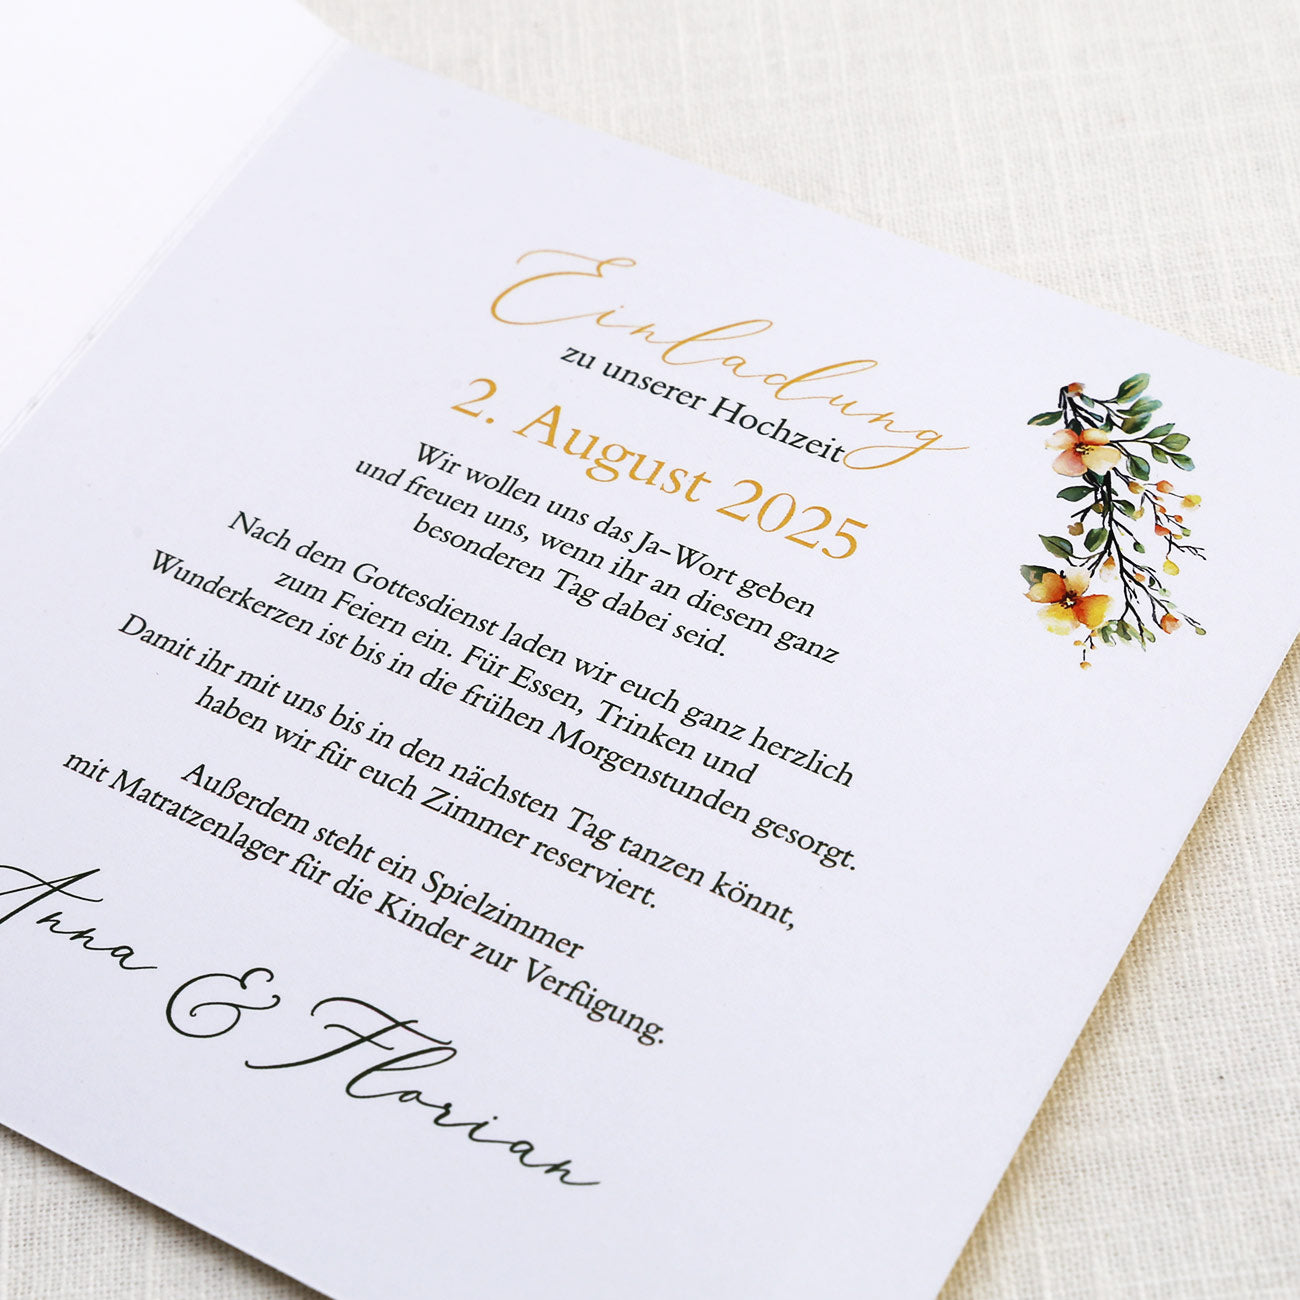 Einladung
zu unserer Hochzeit
2. August 2025
Wir wollen uns das Ja-Wort geben
und freuen uns, wenn ihr an diesem ganz
besonderen Tag dabei seid.
Nach dem Gottesdienst laden wir euch ganz herzlich
zum Feiern ein. Für Essen, Trinken und
Wunderkerzen ist bis in die frühen Morgenstunden gesorgt.
Damit ihr mit uns bis in den nächsten Tag tanzen könnt,
haben wir für euch Zimmer reserviert.
Außerdem steht ein Spielzimmer
mit Matratzenlager für die Kinder zur Verfügung.
Anna & Florian